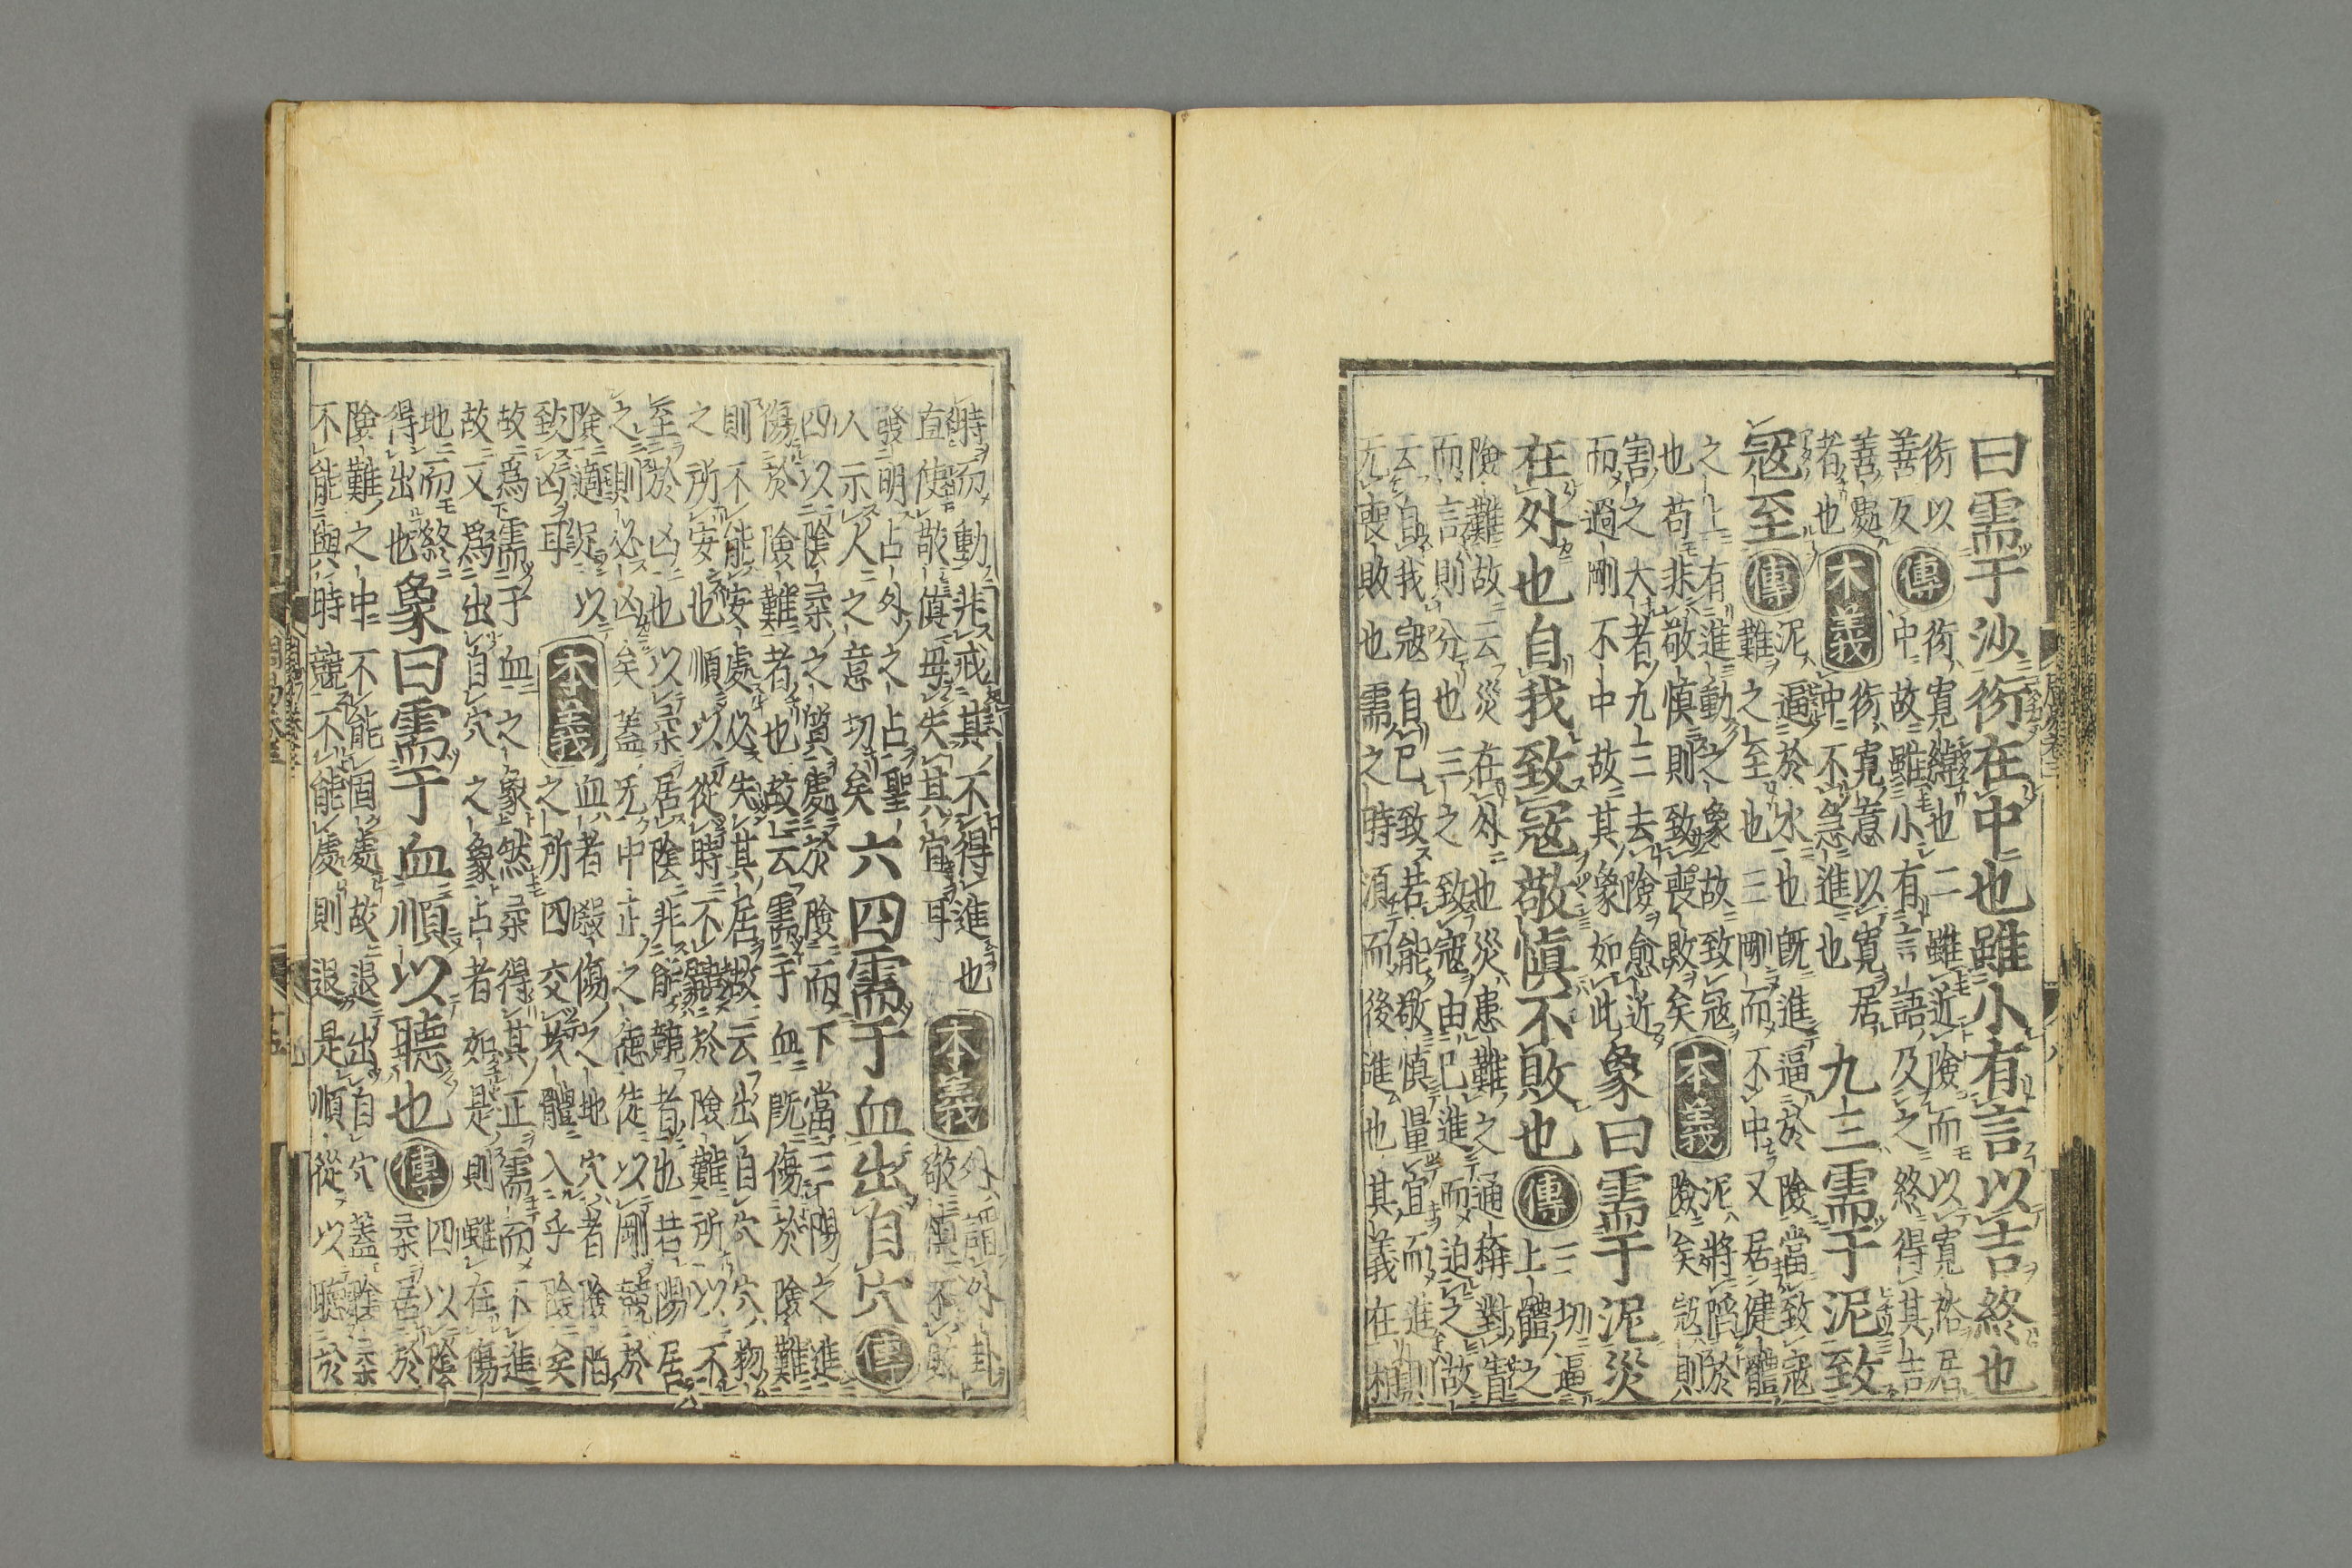 曰需于沙衍在中也雖小有言以吉終也
衍以
善反
傳
衍寬綽也二雖近險而以寬裕居
中故雖小有言語及之終得其吉
善處
者也
本義
衍寬意以寬居
中不急進也
九三需于泥致
寇至
傳
泥逼於水也既進逼於險當致寇
難之至也三剛而不中又居健體
之上有進動之象故致寇
也苟非敬慎則致喪敗矣
本義
泥將陷於
險矣寇則
害之大者九三去險愈近
而過剛不中故其象如此
象曰需于泥災
在外也自我致寇敬慎不敗也
傳
三切逼
上體之
險難故云災在外也災患難之通稱對眚
而言則分也三之致寇由己進而迫之故
云自我寇自己致若能敬慎量宜而進則
无喪敗也需之時須而後進也其義在相
時而動非戒其不得進也
直使敬慎毋失其宜耳
本義
外謂外卦
敬慎不敗
發明占外之占聖
人示人之意切矣
六四需于血出自穴
傳
四以陰柔之質處於險而下當三陽之進
傷於險難者也故云需于血既傷於險難
則不能安處必失其居故云出自穴穴物
之所安也順以從時不競於險難所以不
至於凶也以柔居陰非能競者也若陽居
之則必凶矣蓋无中正之德徒以剛競於
險適足以
致凶耳
本義
血者殺傷之地穴者險陷
之所四交坎體入乎險矣
故為需于血之象然柔得其正需而不進
故又為出自穴之象占者如是則雖在傷
地而終
得出也
象曰需于血順以聽也
傳
四以陰
柔居於
險難之中不能固處故退出自穴蓋陰柔
不能與時競不能處則退是順從以聽於